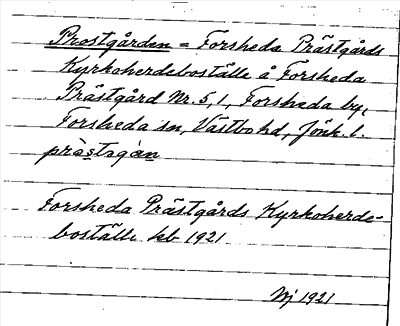 Prostgården = Forsheda Prästgårds
Kyrkoherdeboställe å Forsheda
Prästgård Nr. 5,1, Forsheda by,
Forsheda sn, Västbo hd, Jönk. l.
pròstagàn
Forsheda Prästgårds Kyrkoherde-
boställe kb 1921
Nj 1921